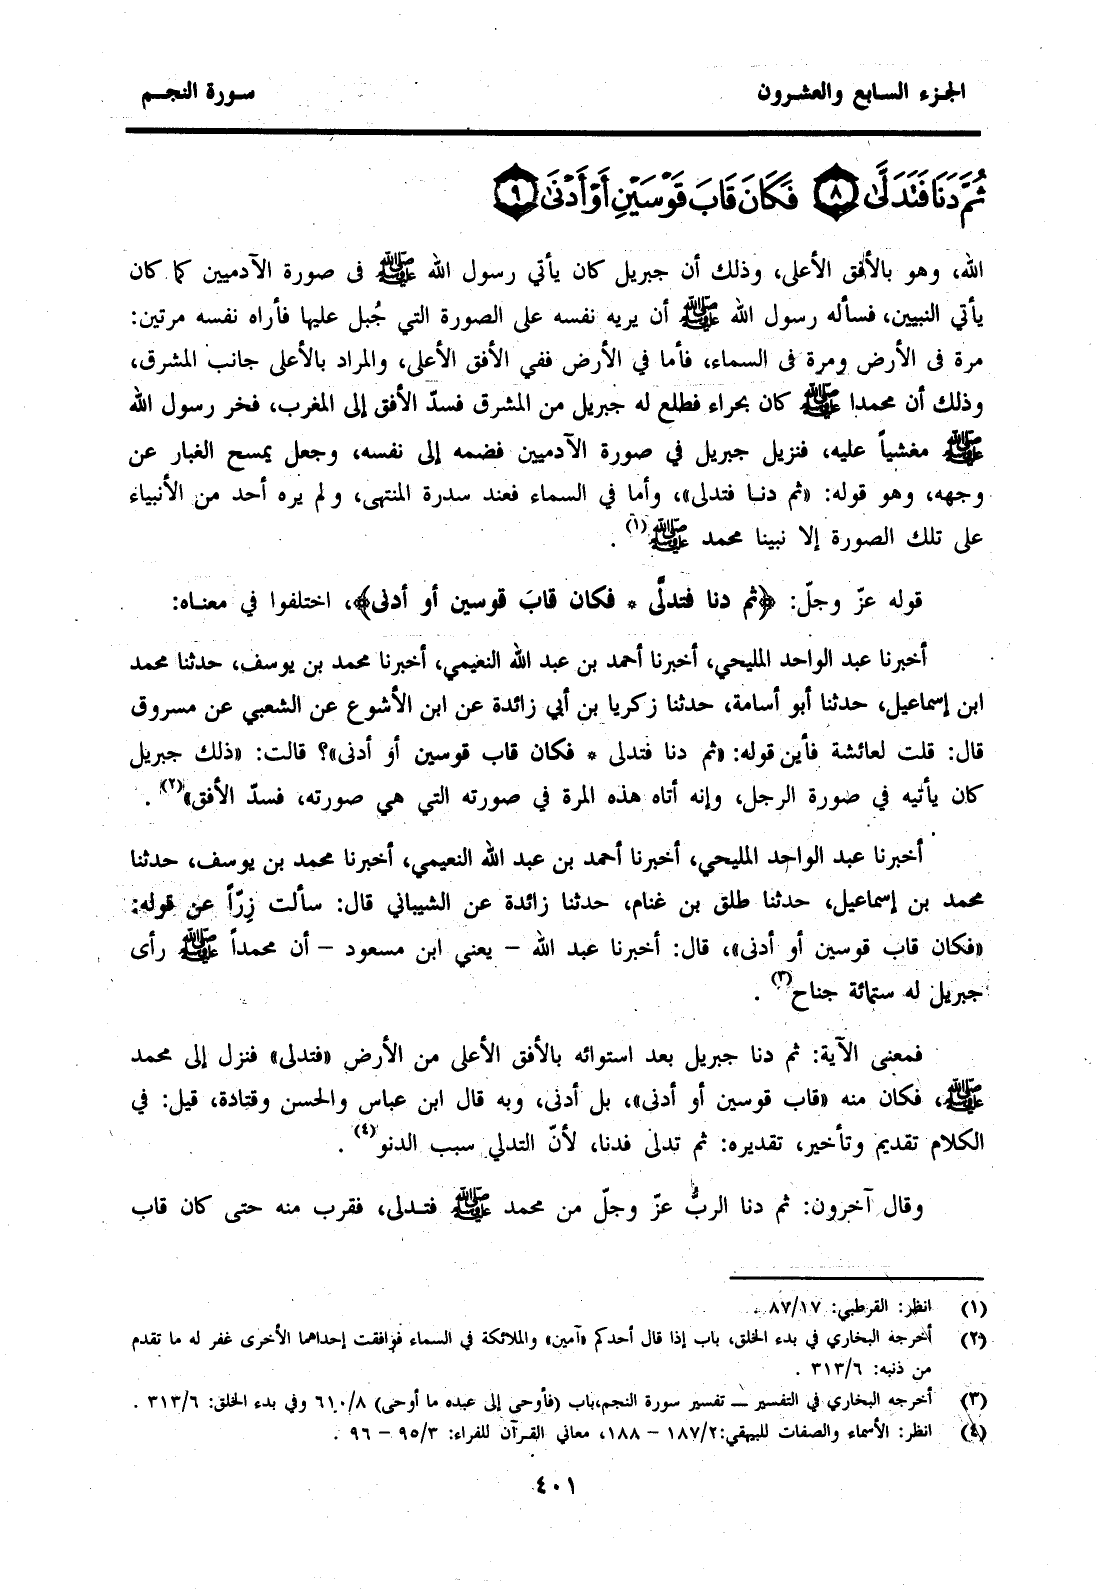 الجزء السابع والعشرون
سورة النجم
ثُمَّ دَنَا فَتَدَلَّىٰ ٨ فَكَانَ قَابَ قَوْسَيْنِ أَوْ أَدْنَىٰ ٩
الله، وهو بالأفق الأعلى، وذلك أن جبريل كان يأتي رسول الله ﷺ فى صورة الآدميين كما كان
يأتي النبيين، فسأله رسول الله ﷺ أن يريه نفسه على الصورة التي جُبل عليها فأراه نفسه مرتين:
مرة فى الأرض ومرة فى السماء، فأما في الأرض ففي الأفق الأعلى، والمراد بالأعلى جانب المشرق،
وذلك أن محمدا ﷺ كان بحراء فطلع له جبريل من المشرق فسدّ الأفق إلى المغرب، فخر رسول الله
ﷺ مغشياً عليه، فنزيل جبريل في صورة الآدميين فضمه إلى نفسه، وجعل يمسح الغبار عن
وجهه، وهو قوله: «ثم دنا فتدلى»، وأما في السماء فعند سدرة المنتهى، ولم يره أحد من الأنبياء
على تلك الصورة إلا نبينا محمد ﷺ(١) .
قوله عزّ وجلّ: ﴿ثم دنا فتدلَّى * فكان قابَ قوسين أو أدنى﴾، اختلفوا في معناه:
أخبرنا عبد الواحد المليحي، أخبرنا أحمد بن عبد الله النعيمي، أخبرنا محمد بن يوسف، حدثنا محمد
ابن إسماعيل، حدثنا أبو أسامة، حدثنا زكريا بن أبي زائدة عن ابن الأشوع عن الشعبي عن مسروق
قال: قلت لعائشة فأين قوله: «ثم دنا فتدلى * فكان قاب قوسين أو أدنى»؟ قالت: «ذلك جبريل
كان يأتيه في صورة الرجل، وإنه أتاه هذه المرة في صورته التي هي صورته، فسدّ الأفق»(٢) .
أخبرنا عبد الواحد المليحي، أخبرنا أحمد بن عبد الله النعيمي، أخبرنا محمد بن يوسف، حدثنا
محمد بن إسماعيل، حدثنا طلق بن غنام، حدثنا زائدة عن الشيباني قال: سألت زِرّاً عن قوله:
«فكان قاب قوسين أو أدنى»، قال: أخبرنا عبد الله – يعني ابن مسعود – أن محمداً ﷺ رأى
جبريل له ستمائة جناح(٣) .
فمعنى الآية: ثم دنا جبريل بعد استوائه بالأفق الأعلى من الأرض «فتدلى» فنزل إلى محمد
ﷺ، فكان منه «قاب قوسين أو أدنى»، بل أدنى، وبه قال ابن عباس والحسن وقتادة، قيل: في
الكلام تقديم وتأخير، تقديره: ثم تدلى فدنا، لأنّ التدلي سبب الدنو(٤) .
وقال آخرون: ثم دنا الربُّ عزّ وجلّ من محمد ﷺ فتدلى، فقرب منه حتى كان قاب
(١) انظر: القرطبي: ٨٧/١٧ .
(٢) أخرجه البخاري في بدء الخلق، باب إذا قال أحدكم «آمين» والملائكة في السماء فوافقت إحداهما الأخرى غفر له ما تقدم
من ذنبه: ٣١٣/٦ .
(٣) أخرجه البخاري في التفسير ــ تفسير سورة النجم،باب (فأوحى إلى عبده ما أوحى) ٦١٠/٨ وفي بدء الخلق: ٣١٣/٦ .
(٤) انظر: الأسماء والصفات للبيهقي:١٨٧/٢ – ١٨٨، معاني القرآن للفراء: ٩٥/٣ – ٩٦ .
٤٠١